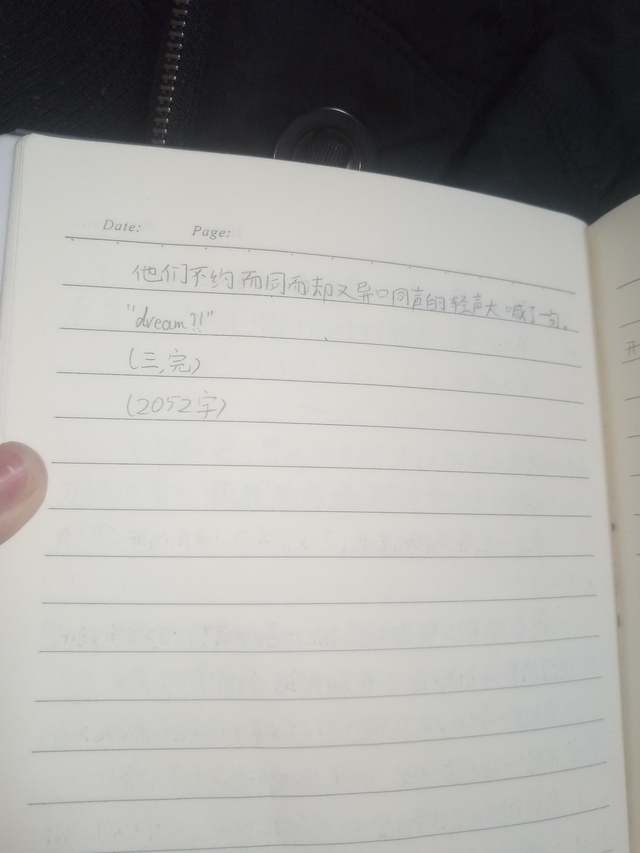 Date: Page:
他们不约而同而却又异口同声的轻声大喊了一句。
"dream?!"
(三,完)
(2052字)
开